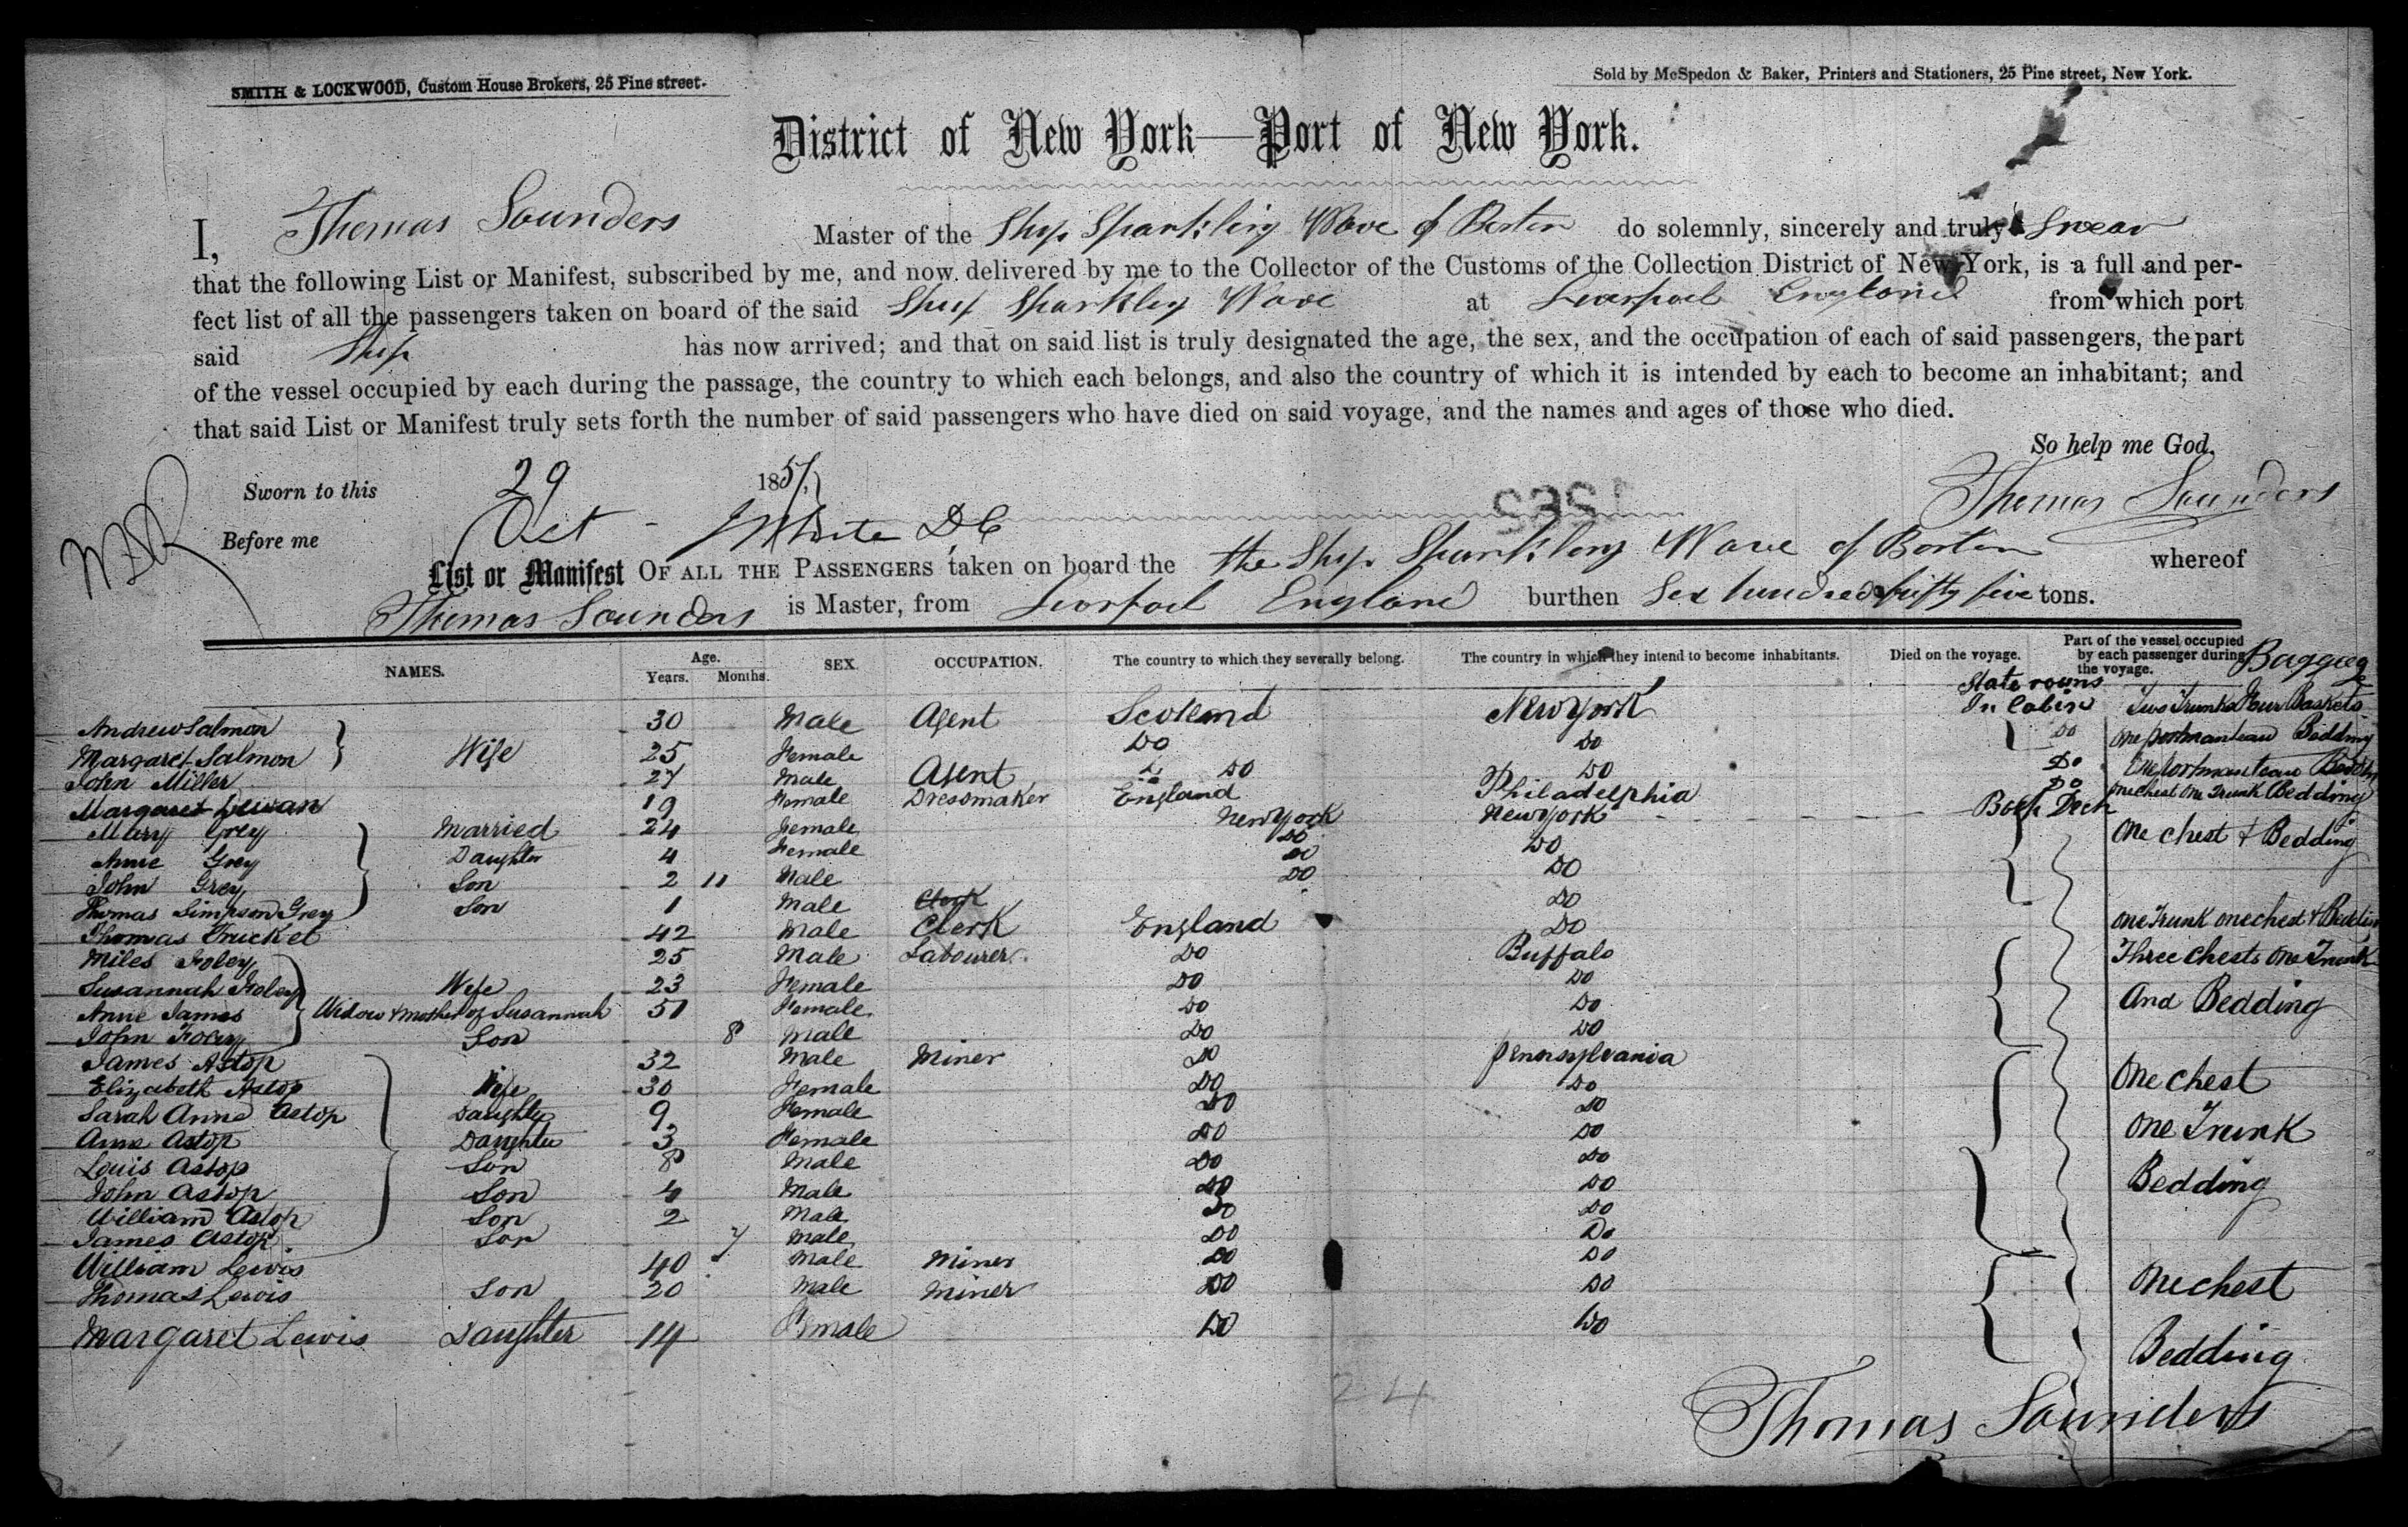 SMITH & LOCKWOOD, Custom House Brokers, 25 Pine street.
Sold by McSpedon & Baker, Printers and Stationers, 25 Pine street, New York.
District of New York—Port of New York.
I, Thomas Saunders Master of the Ship Sparkling Wave of Boston do solemnly, sincerely and truly Swear
that the following List or Manifest, subscribed by me, and now delivered by me to the Collector of the Customs of the Collection District of New York, is a full and per-
fect list of all the passengers taken on board of the said Ship Sparkling Wave at Liverpool England from which port
said Ship has now arrived; and that on said list is truly designated the age, the sex, and the occupation of each of said passengers, the part
of the vessel occupied by each during the passage, the country to which each belongs, and also the country of which it is intended by each to become an inhabitant; and
that said List or Manifest truly sets forth the number of said passengers who have died on said voyage, and the names and ages of those who died.
So help me God.
Sworn to this 29 Oct 1857
Thomas Saunders
Before me J White D C
List or Manifest OF ALL THE PASSENGERS taken on board the the Ship Sparkling Wave of Boston whereof
Thomas Saunders is Master, from Liverpool England burthen Six hundred & fifty five tons.
NAMES. Age. Years. Months. SEX. OCCUPATION. The country to which they severally belong. The country in which they intend to become inhabitants. Died on the voyage. Part of the vessel occupied by each passenger during the voyage. Baggage
State rooms
Andrew Salmon 30 Male Agent Scotland New York In Cabin Two Trunks Four Baskets
Margaret Salmon Wife 25 Female Do Do Do One portmanteau Bedding
John Miller 27 Male Agent Do Do Do One portmanteau Bedding
Margaret 19 Female Dressmaker England Philadelphia Do One chest One Trunk Bedding
Mary Grey Married 24 Female New York New York Deck
Anne Grey Daughter 4 Female Do Do One chest & Bedding
John Grey Son 2 11 Male Do Do
Thomas Simpson Grey Son 1 Male Clerk Do Do
Thomas 42 Male Clerk England Do One Trunk one chest & Bedding
Miles Foley 25 Male Labourer Do Buffalo Three chests One Trunk
Susannah Foley Wife 23 Female Do Do
Anne James Widow & mother of Susannah 51 Female Do Do And Bedding
John Foley Son 8 Male Do Do
James Astop 32 Male Miner Do Pennsylvania
Elizabeth Astop Wife 30 Female Do Do One chest
Sarah Anne Astop Daughter 9 Female Do Do
Anne Astop Daughter 3 Female Do Do One Trunk
Louis Astop Son 8 Male Do Do
John Astop Son 4 Male Do Do Bedding
William Astop Son 2 Male Do Do
James Astop Son 7 Male Do Do
William Lewis 40 Male Miner Do Do
Thomas Lewis Son 20 Male Miner Do Do One chest
Margaret Lewis Daughter 14 Female Do Do Bedding
24
Thomas Saunders